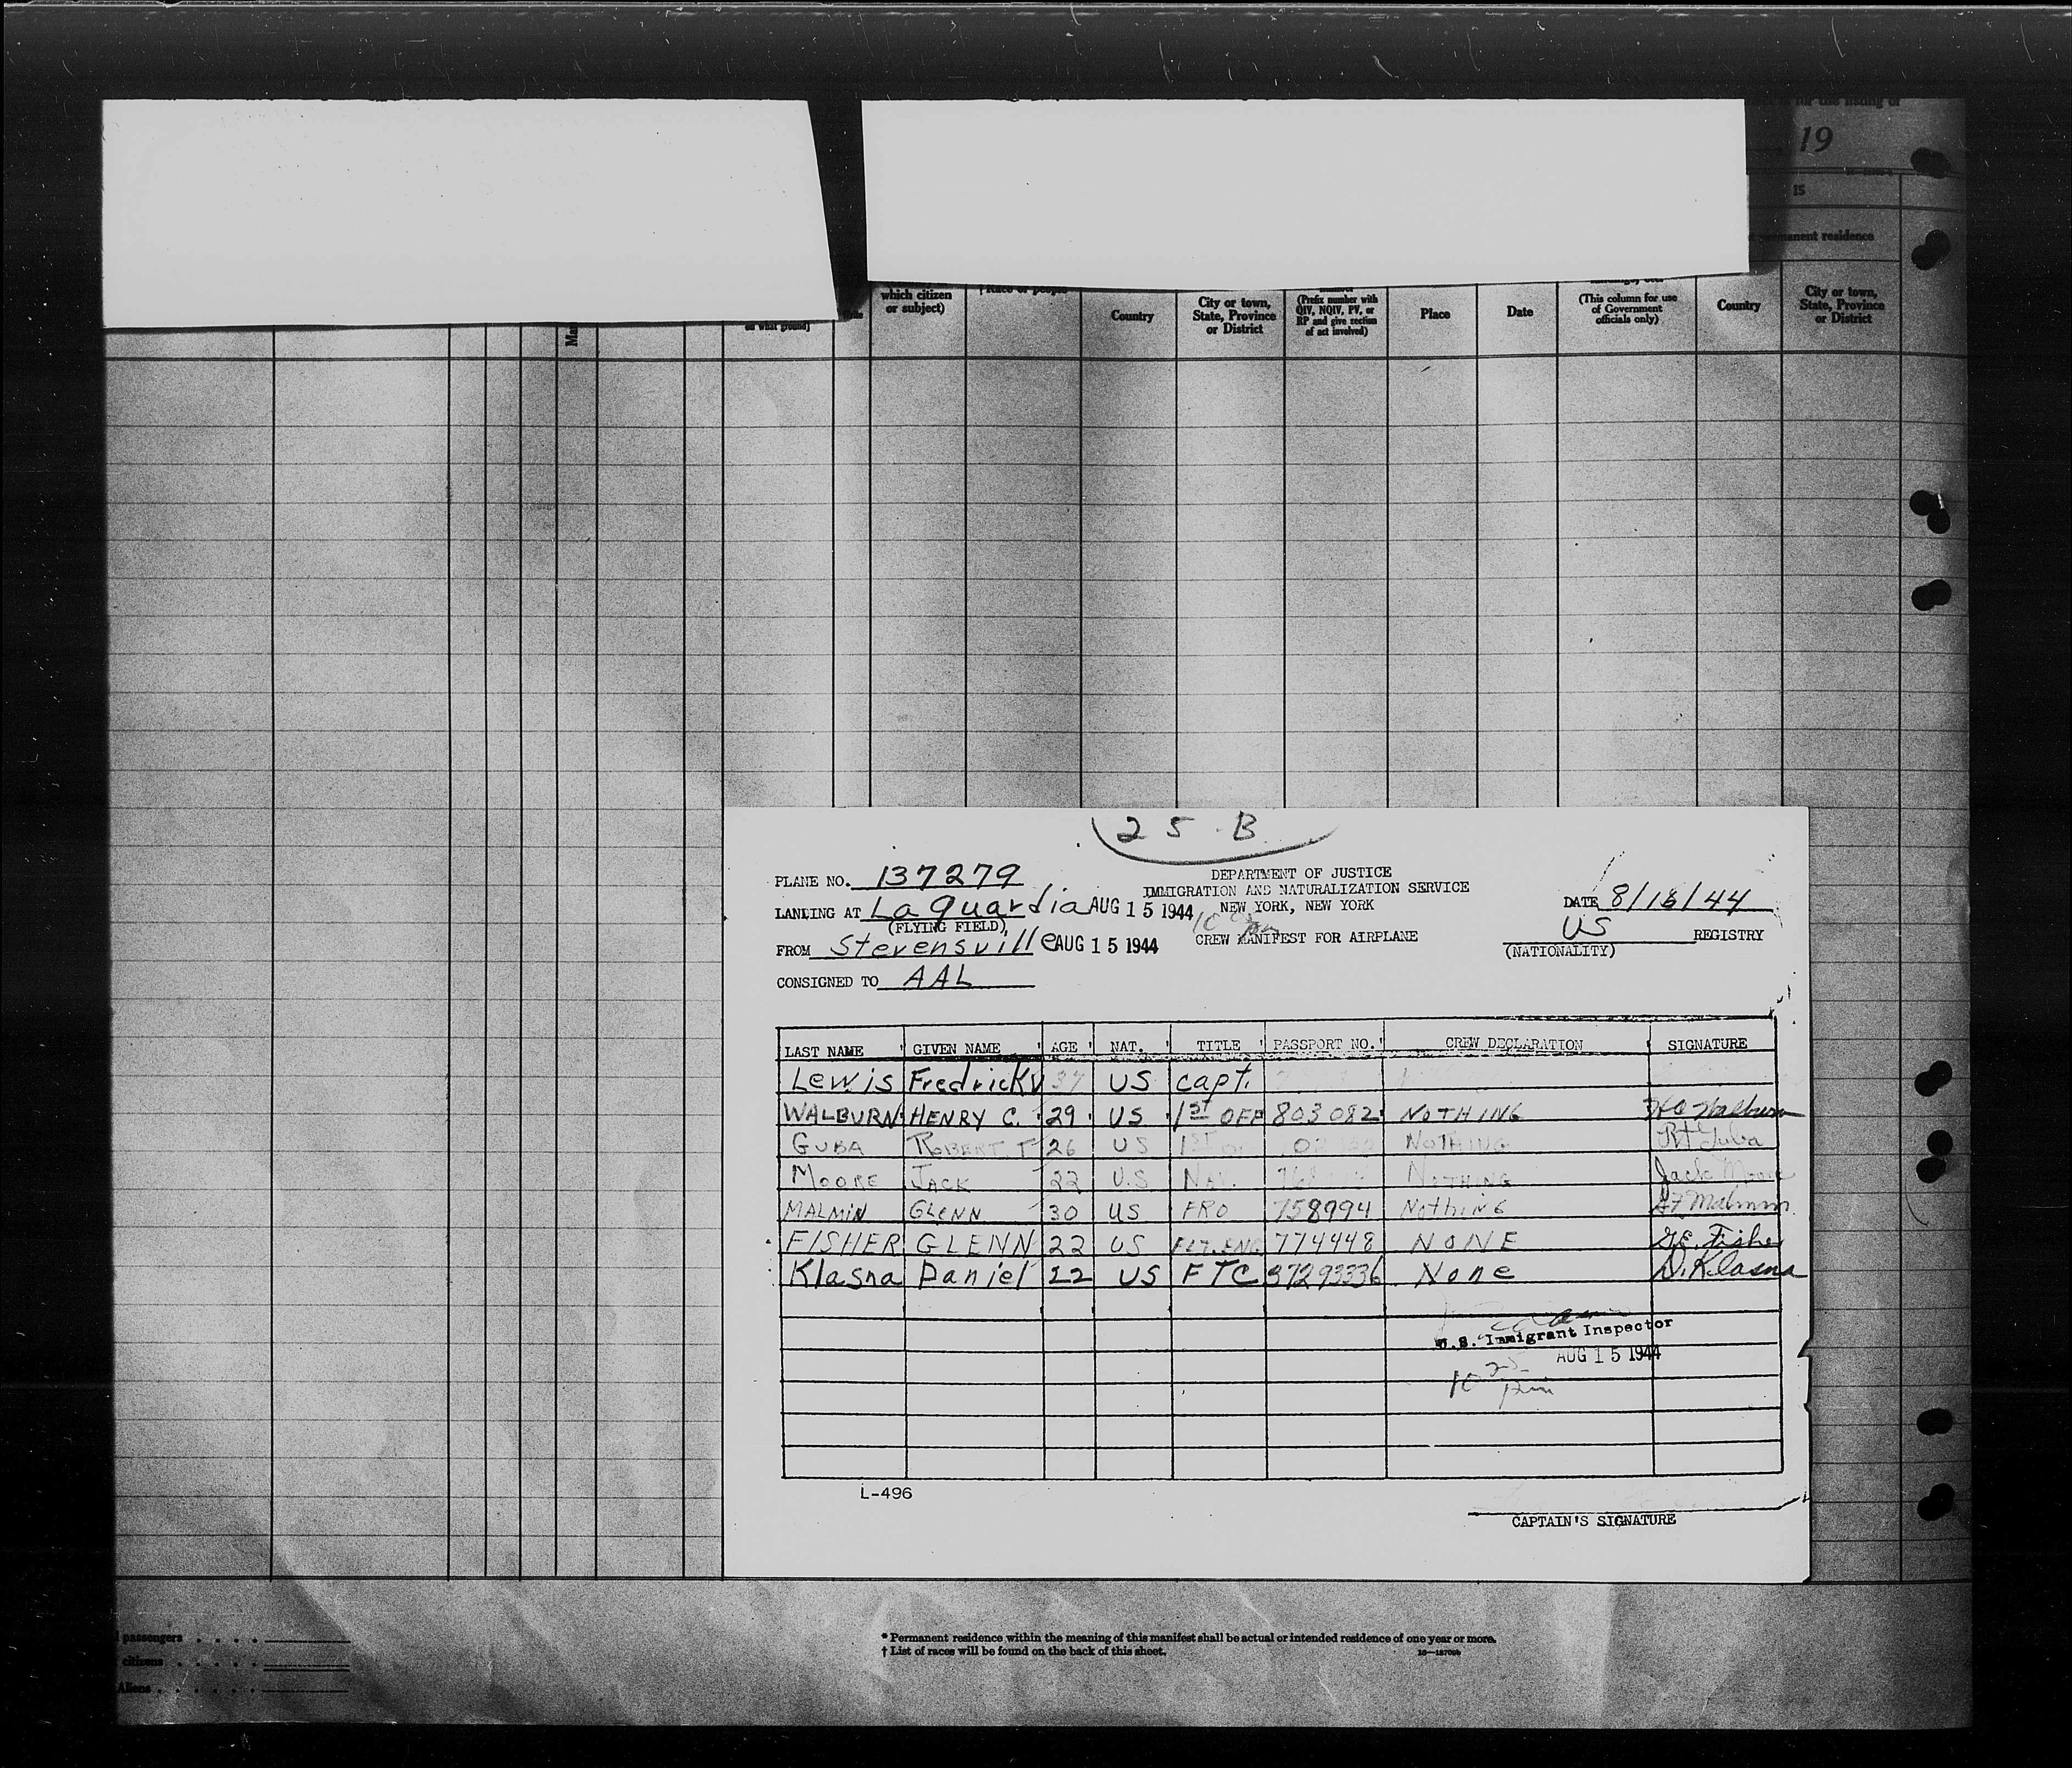 for the listing of
19
15
permanent residence
which citizen
or subject)
† Race or people
Country
City or town,
State, Province
or District
(Prefix number with
QIV, NQIV, PV, or
RP and give section
of act involved)
Place
Date
(This column for use
of Government
officials only)
Country
City or town,
State, Province
or District
on what ground]
25-B
PLANE NO. 137279
DEPARTMENT OF JUSTICE
IMMIGRATION AND NATURALIZATION SERVICE
LANDING AT La Guardia AUG 15 1944 NEW YORK, NEW YORK DATE 8/15/44
(FLYING FIELD)
US REGISTRY
FROM Stevensville AUG 15 1944 CREW MANIFEST FOR AIRPLANE (NATIONALITY)
CONSIGNED TO AAL
LAST NAME GIVEN NAME AGE NAT. TITLE PASSPORT NO. CREW DECLARATION SIGNATURE
Lewis Fredrick V 37 US capt.
WALBURN HENRY C. 29 US 1ST OFF 803082 NOTHING HC Walburn
GUBA ROBERT T 26 US 1ST NOTHING RT Guba
MOORE JACK 22 U.S NAV. NOTHING Jack Moore
MALMIN GLENN 30 US FRO 758994 Nothing G F Malmin
FISHER GLENN 22 US FLT. ENG. 774448 NONE G.E. Fisher
Klasna Daniel 22 US FTC 37293336 None D. Klasna
U.S. Immigrant Inspector
AUG 15 1944
10 25 pm
L-496
CAPTAIN'S SIGNATURE
passengers
citizens
Aliens
* Permanent residence within the meaning of this manifest shall be actual or intended residence of one year or more.
† List of races will be found on the back of this sheet.